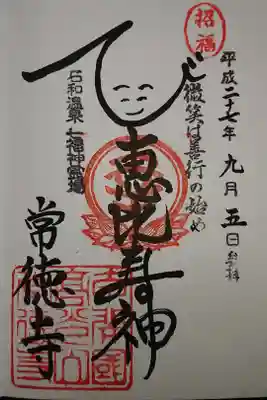 招福
平成二十七年九月五日参拝
微笑は善行の始め
恵比寿神
石和温泉
七福神霊場
常徳寺